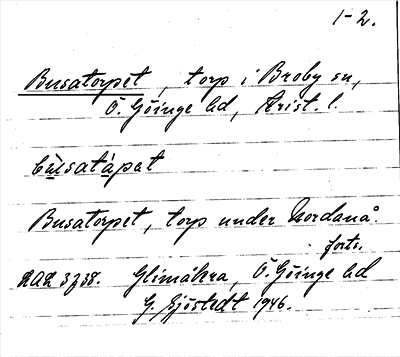 1-2.
Busatorpet, torp i Broby sn,
Ö. Göinge hd, Krist. l.
bùsatápat
Busatorpet, torp under Nordanå.
forts.
LAL 3738. Glimåkra, Ö. Göinge hd
G. Sjöstedt 1946.